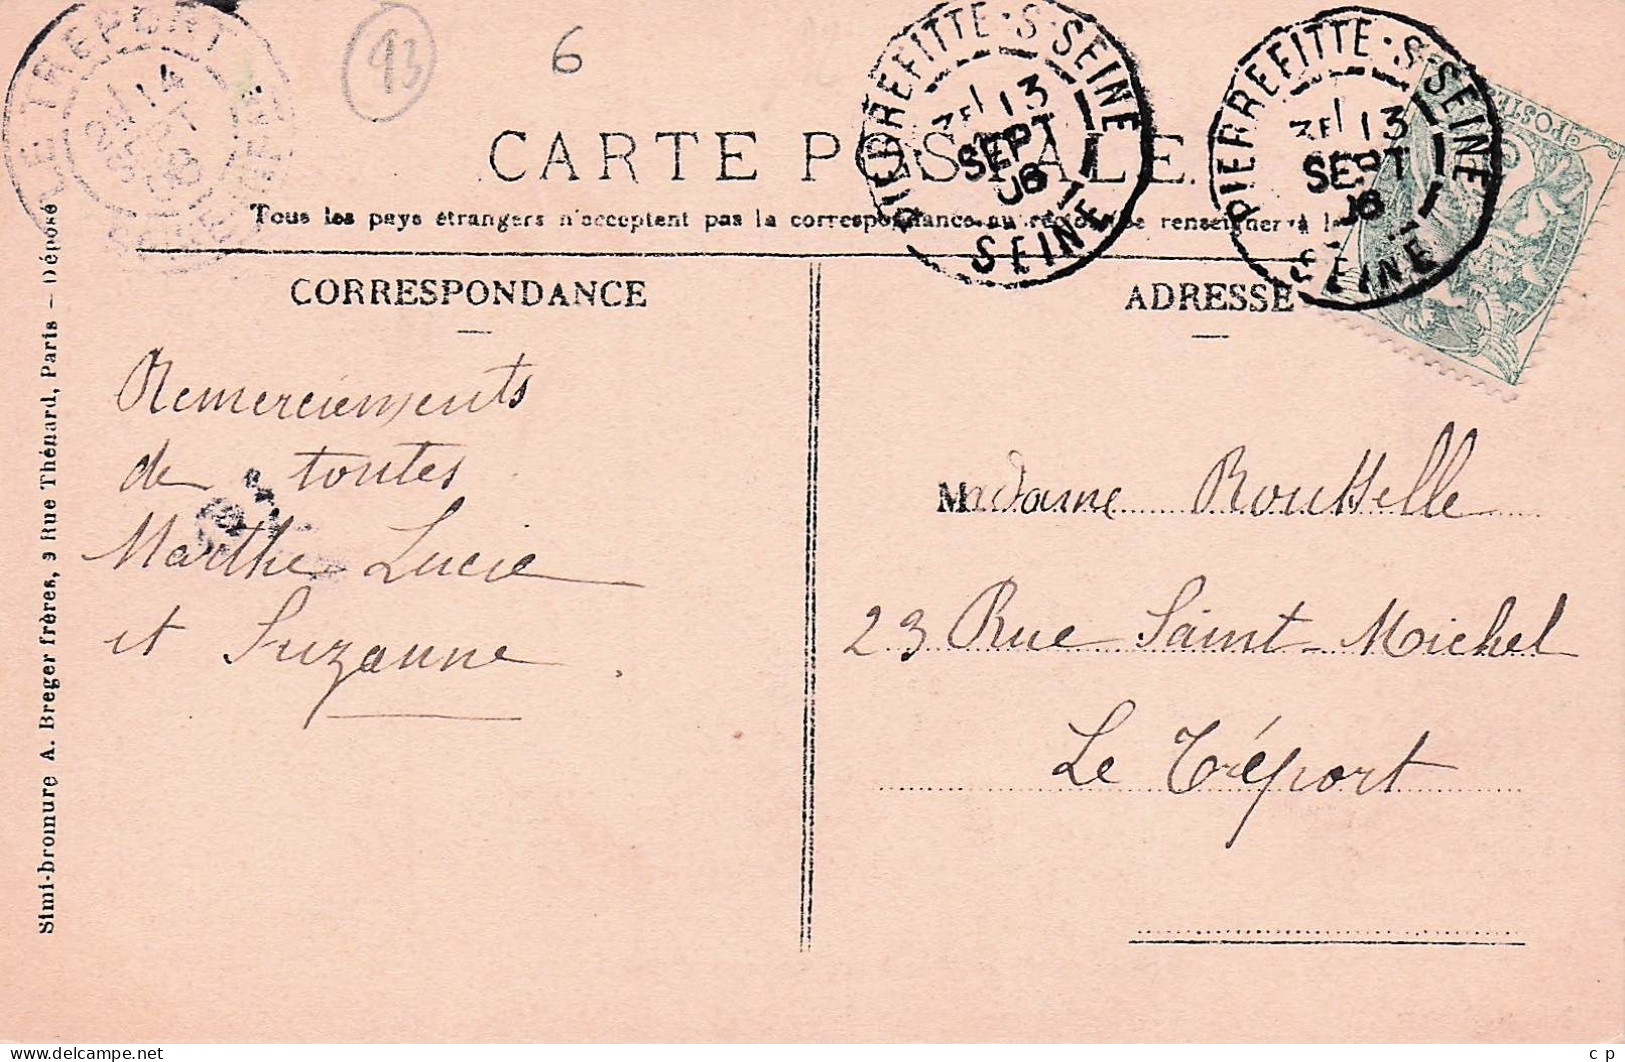 LE TREPORT
14
93
6
PIERREFITTE·S·SEINE
13
SEPT
06
SEINE
PIERREFITTE·S·SEINE
13
SEPT
06
SEINE
POSTES
CARTE POSTALE
Tous les pays étrangers n'acceptent pas la correspondance au renseigner à
CORRESPONDANCE
ADRESSE
Remerciements
de toutes
Marthe Lucie
et Suzanne
Madame Rousselle
23 Rue Saint-Michel
Le Tréport
Simi-bromure A. Breger frères, 9 Rue Thénard, Paris — Déposé
c p